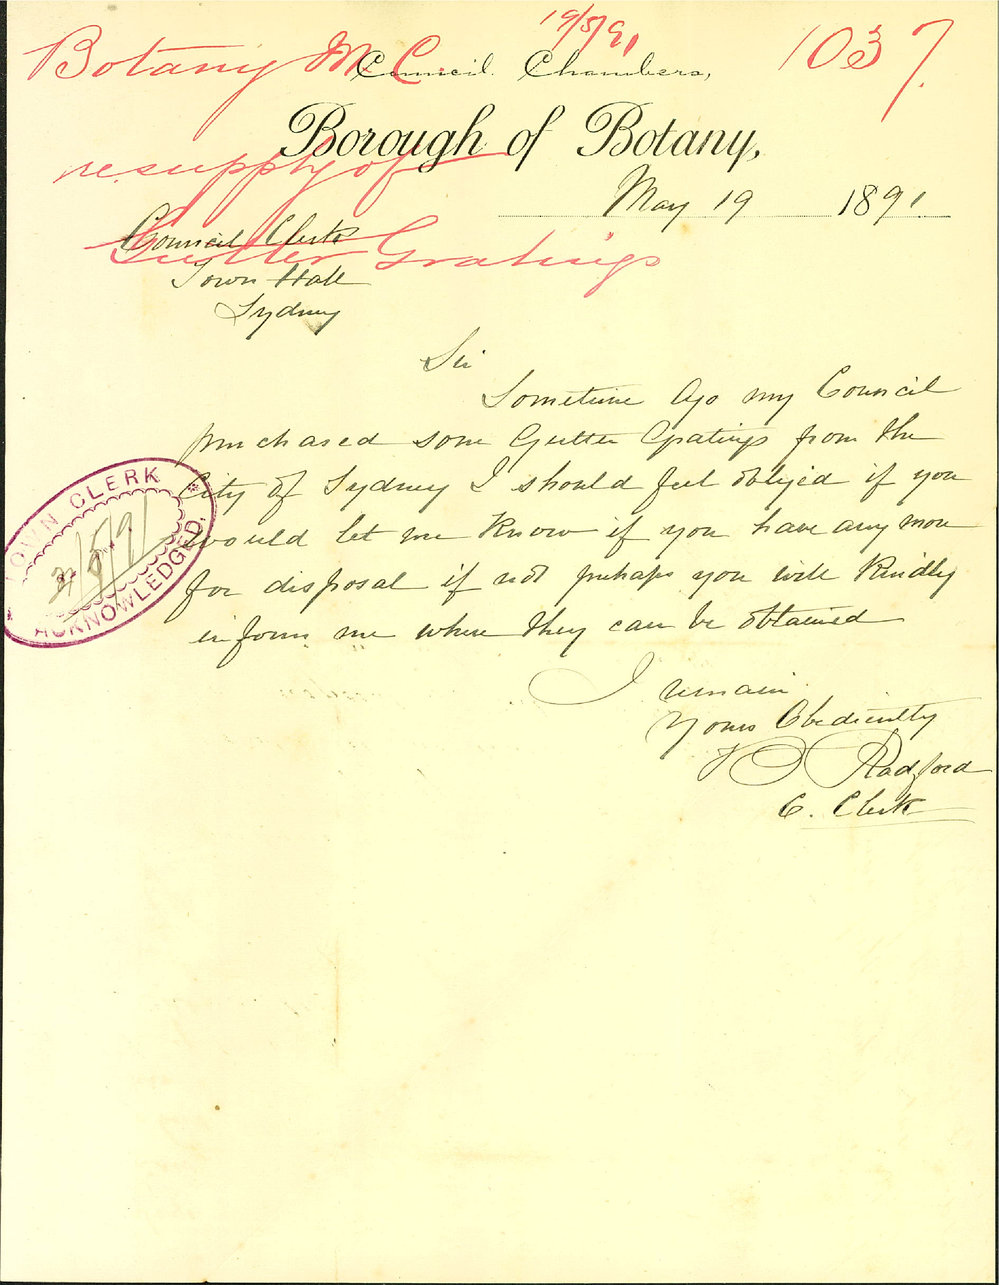 19/5/91
Botany M. C. 1037.
Council Chambers,
Borough of Botany,
re supply of
May 19 1891
Council Clerk
Gutter Gratings
Town Hall
Sydney
Sir
Sometime Ago my Council
purchased some Gutter Gratings from the
City of Sydney I should feel obliged if you
would let me know if you have any more
for disposal if not perhaps you will Kindly
inform me where they can be obtained
I remain
Yours Obediently
Radford
C. Clerk
TOWN CLERK
21/5/91
ACKNOWLEDGED.